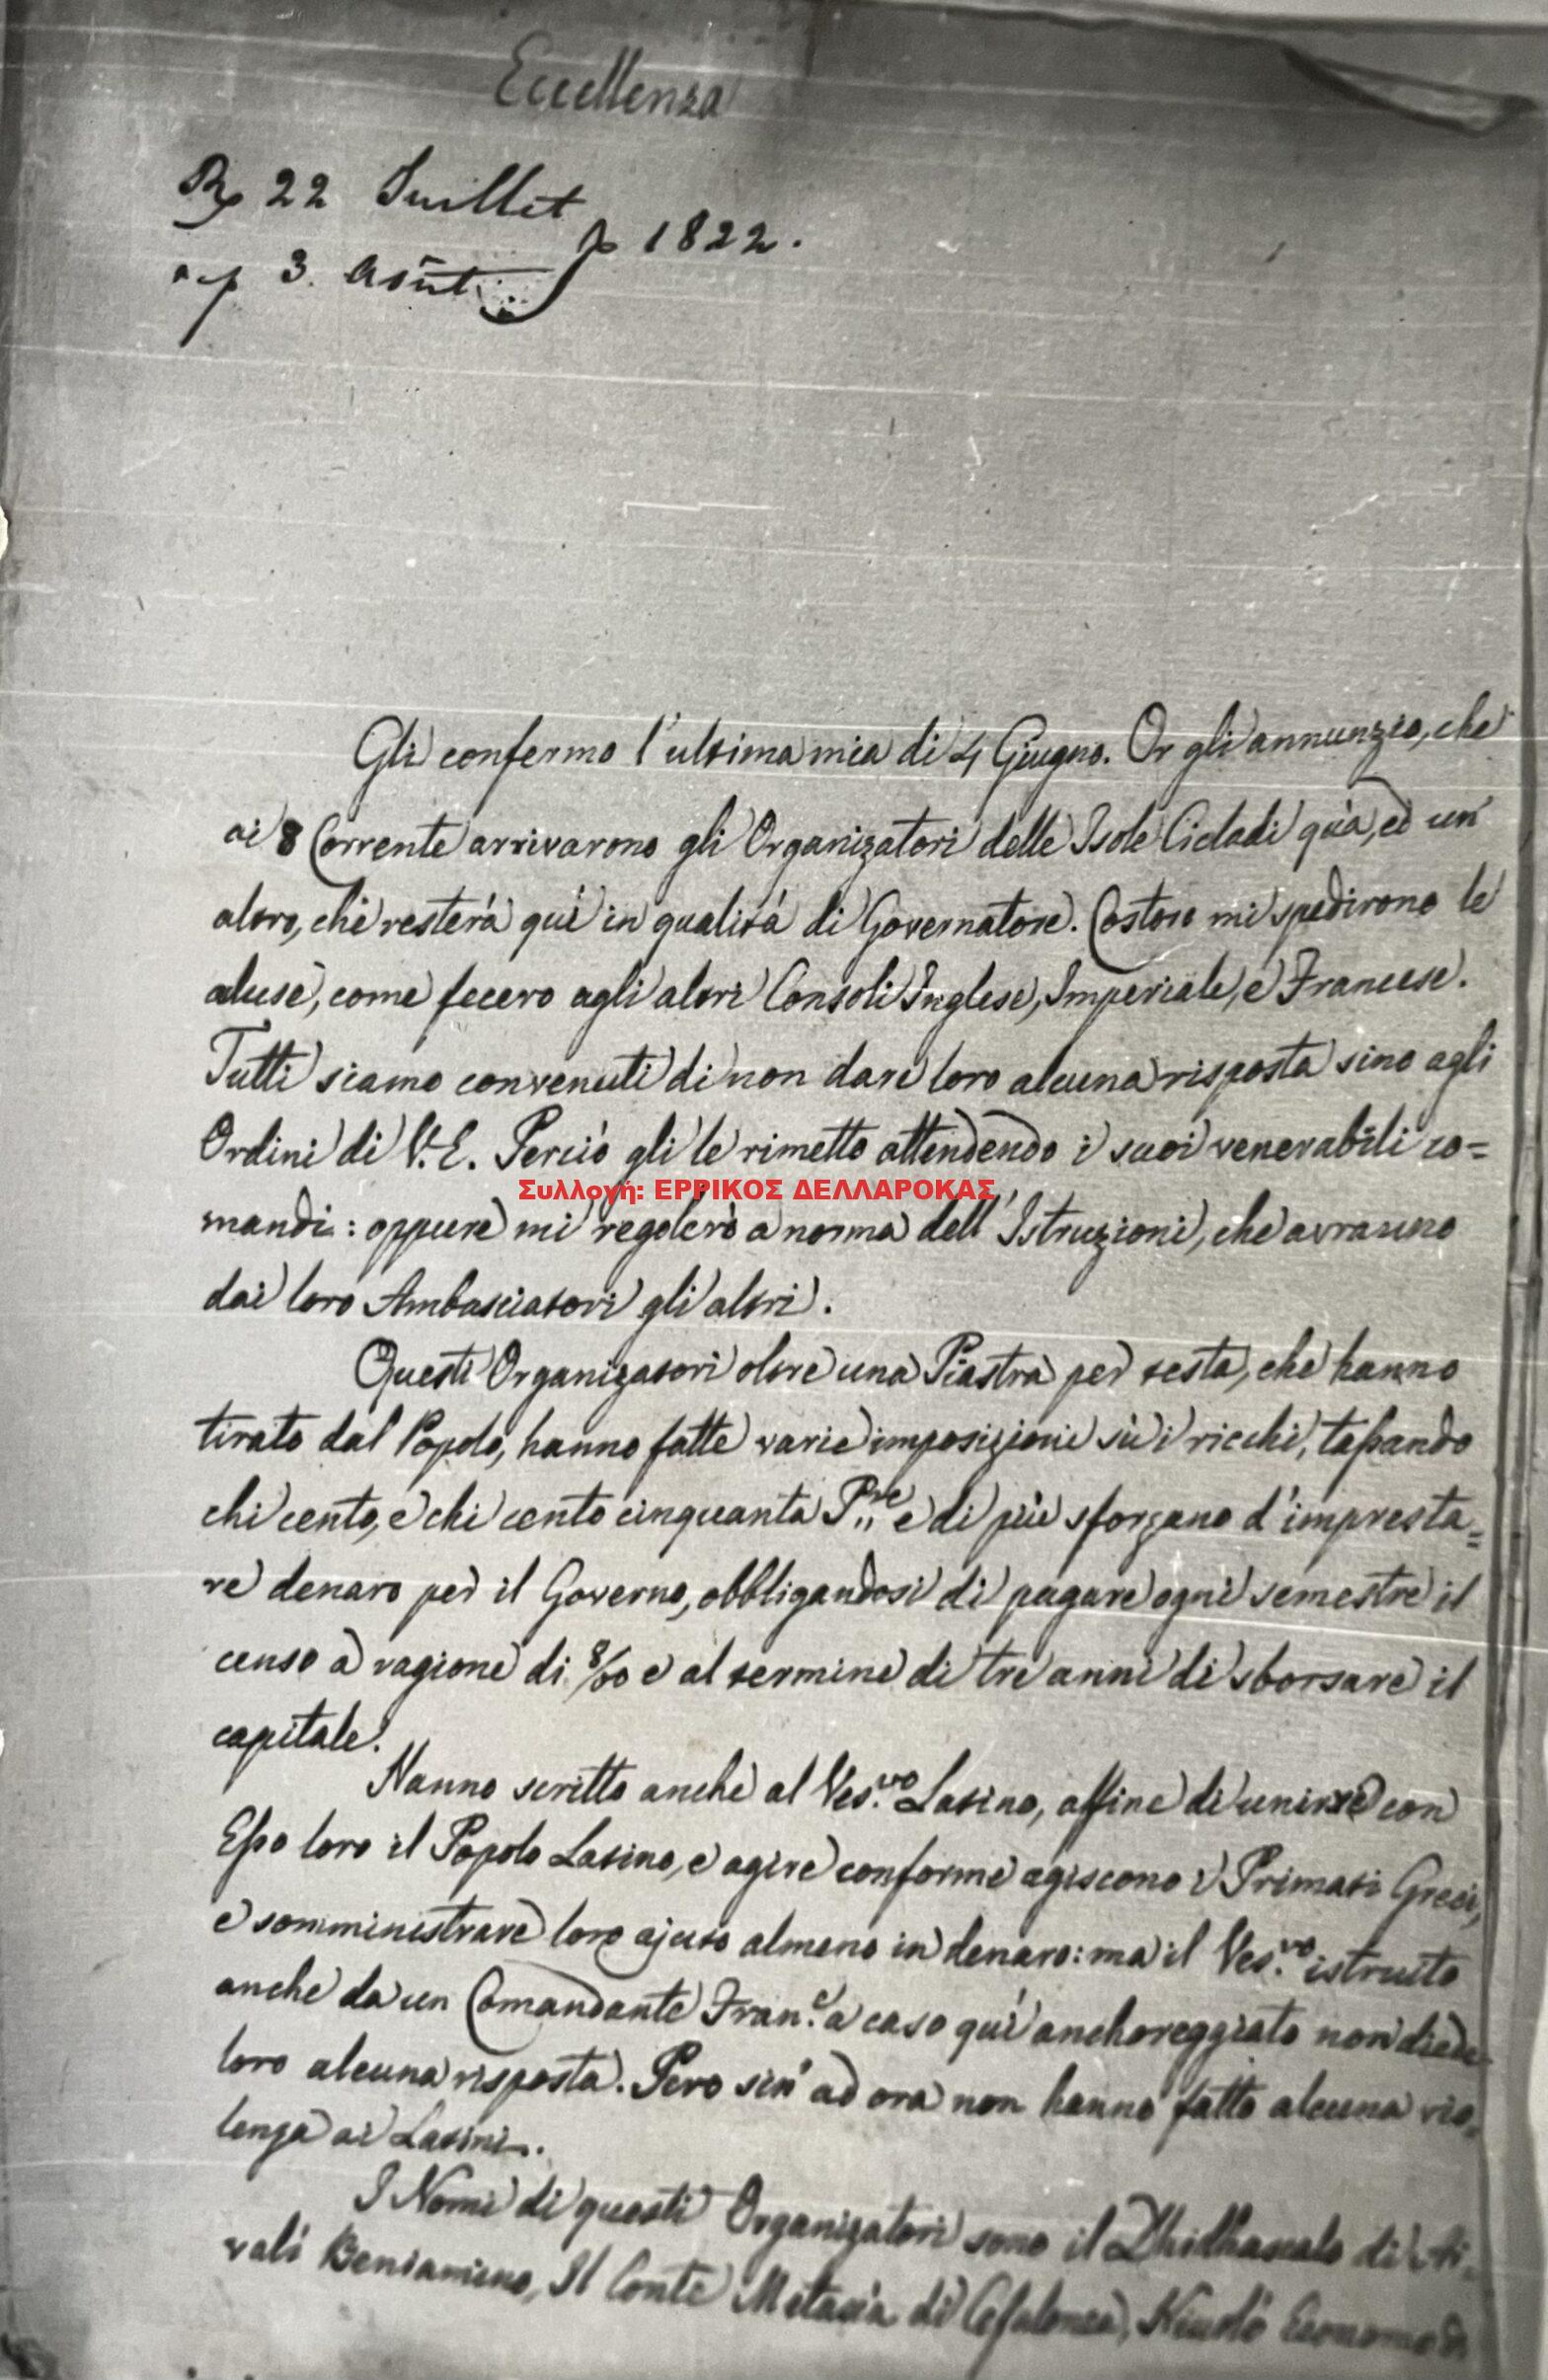 Eccellenza
Rp 22 Juillet
rep 3. Août 1822.
Gli confermo l'ultima mia di 4 Giugno. Or gli annunzio, che
ai 8 Corrente arrivarono gli Organizatori delle Isole Cicladi quà, ed un
altro, che resterà quì in qualità di Governatore. Costoro mi spedirono le
acluse, come fecero agli altri Consoli Inglese, Imperiale, e Francese.
Tutti siamo convenuti di non dare loro alcuna risposta sino agli
Ordini di V. E. Perciò gli le rimetto attendendo i suoi venerabili co=
mandi: oppure mi regolerò a norma dell'Istruzioni, che avranno
dai loro Ambasciatori gli altri.
Συλλογή: ΕΡΡΙΚΟΣ ΔΕΛΛΑΡΟΚΑΣ
Questi Organizatori oltre una Piastra per testa, che hanno
tirato dal Popolo, hanno fatte varie imposizioni sù i ricchi, tassando
chi cento, e chi cento cinquanta P.re e di più sforzano d'impresta=
re denaro per il Governo, obbligandosi di pagare ogni semestre il
censo a ragione di 8/00 e al termine di tre anni di sborsare il
capitale.
Hanno scritto anche al Ves.vo Latino, affine di unirse con
Esso loro il Popolo Latino, e agire conforme agiscono i Primati Greci,
e somministrare loro ajuto almeno in denaro: ma il Ves.vo istruito
anche da un Comandante Fran.e a caso quì anchoreggiato non diede
loro alcuna risposta. Pero sin' ad ora non hanno fatto alcuna vio=
lenza ai Latini.
I Nomi di questi Organizatori sono il Dhidhascalo di Ai=
valì Beniamino, Il Conte Metaxà di Cefalonia, Economo di